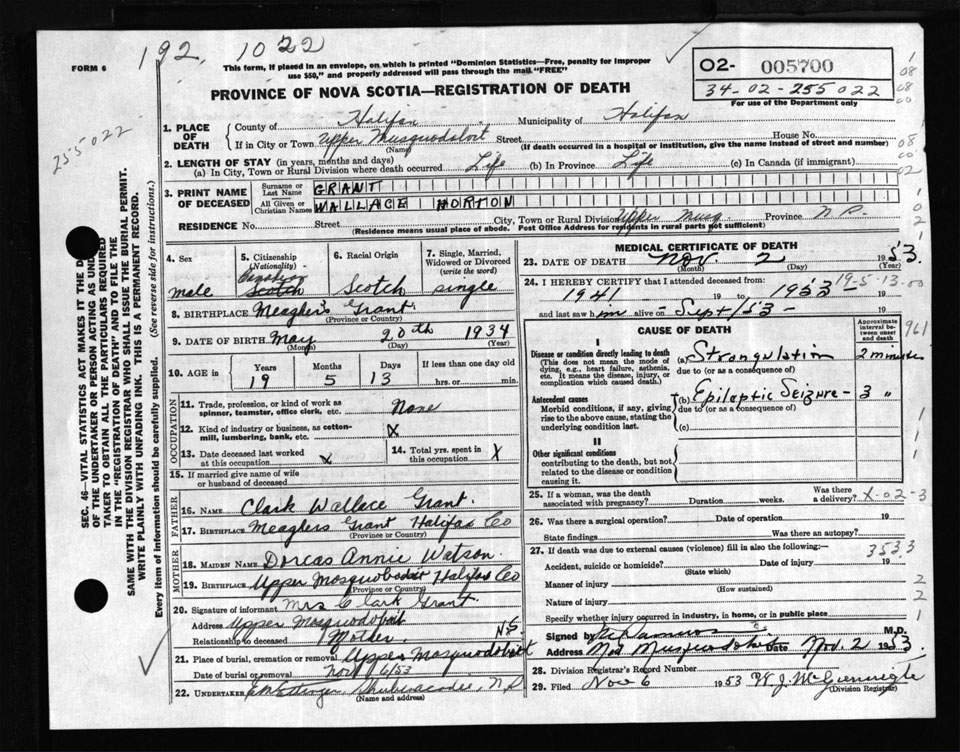 192, 1022
FORM 6
This form, if placed in an envelope, on which is printed "Dominion Statistics—Free, penalty for improper use $50," and properly addressed will pass through the mail "FREE"
02- 005700
34-02-255022
For use of the Department only
255022
PROVINCE OF NOVA SCOTIA—REGISTRATION OF DEATH
1. PLACE OF DEATH County of Halifax Municipality of Halifax
If in City or Town Upper Musquodoboit Street House No.
(Name) (If death occurred in a hospital or institution, give the name instead of street and number)
2. LENGTH OF STAY (in years, months and days)
(a) In City, Town or Rural Division where death occurred Life (b) In Province Life (c) In Canada (if immigrant)
3. PRINT NAME OF DECEASED Surname or Last Name GRANT
All Given or Christian Names WALLACE HORTON
RESIDENCE No. Street City, Town or Rural Division Upper Musq. Province N.S.
(Residence means usual place of abode. Post Office Address for residents in rural parts not sufficient)
4. Sex male
5. Citizenship (Nationality) Canadian Scotch
6. Racial Origin Scotch
7. Single, Married, Widowed or Divorced (write the word) single
8. BIRTHPLACE Meaghers Grant
(Province or Country)
9. DATE OF BIRTH May 20th 1934
(Month) (Day) (Year)
10. AGE in Years 19 Months 5 Days 13 If less than one day old hrs. or min.
OCCUPATION
11. Trade, profession, or kind of work as spinner, teamster, office clerk, etc. None
12. Kind of industry or business, as cotton-mill, lumbering, bank, etc. X
13. Date deceased last worked at this occupation X
14. Total yrs. spent in this occupation X
15. If married give name of wife or husband of deceased
FATHER
16. NAME Clark Wallace Grant.
17. BIRTHPLACE Meaghers Grant Halifax Co
(Province or Country)
MOTHER
18. MAIDEN NAME Dorcas Annie Watson.
19. BIRTHPLACE Upper Mosquodoboit Halifax Co
(Province or Country)
20. Signature of informant Mrs Clark Grant
Address Upper Mosquodoboit N.S.
Relationship to deceased Mother.
21. Place of burial, cremation or removal Upper Mosquodoboit
Date of burial or removal Nov 6/53
22. UNDERTAKER Shubenacadie, N.S
(Name and address)
MEDICAL CERTIFICATE OF DEATH
23. DATE OF DEATH Nov. 2 1953.
(Month) (Day) (Year)
24. I HEREBY CERTIFY that I attended deceased from: 19-5-13-00
1941 19 to 1953 19
and last saw him alive on Sept/53- 19
CAUSE OF DEATH
Approximate interval between onset and death
I
Disease or condition directly leading to death (a) Strangulation 2 minutes
(This does not mean the mode of dying, e.g., heart failure, asthenia, etc. It means the disease, injury, or complication which caused death.)
due to (or as a consequence of)
Antecedent causes (b) Epileptic Seizure - 3 "
Morbid conditions, if any, giving rise to the above cause, stating the underlying condition last.
due to (or as a consequence of)
(c)
II
Other significant conditions
contributing to the death, but not related to the disease or condition causing it.
25. If a woman, was the death associated with pregnancy? Duration weeks. Was there a delivery? X-02-3
26. Was there a surgical operation? Date of operation 19
State findings Was there an autopsy?
27. If death was due to external causes (violence) fill in also the following: 3533
Accident, suicide or homicide? Date of injury 19
(State which)
Manner of injury
(How sustained)
Nature of injury
Specify whether injury occurred in industry, in home, or in public place
Signed by M.D.
Address Mid Musquodoboit Date Nov. 2 1953.
28. Division Registrar's Record Number
29. Filed Nov 6 1953
(Division Registrar)
SEC. 46—VITAL STATISTICS ACT MAKES IT THE D
OF THE UNDERTAKER OR PERSON ACTING AS UND
TAKER TO OBTAIN ALL THE PARTICULARS REQUIRED
IN THE "REGISTRATION OF DEATH" AND TO FILE THE
SAME WITH THE DIVISION REGISTRAR WHO SHALL ISSUE THE BURIAL PERMIT.
WRITE PLAINLY WITH UNFADING INK. THIS IS A PERMANENT RECORD.
Every item of information should be carefully supplied. (See reverse side for instructions.)